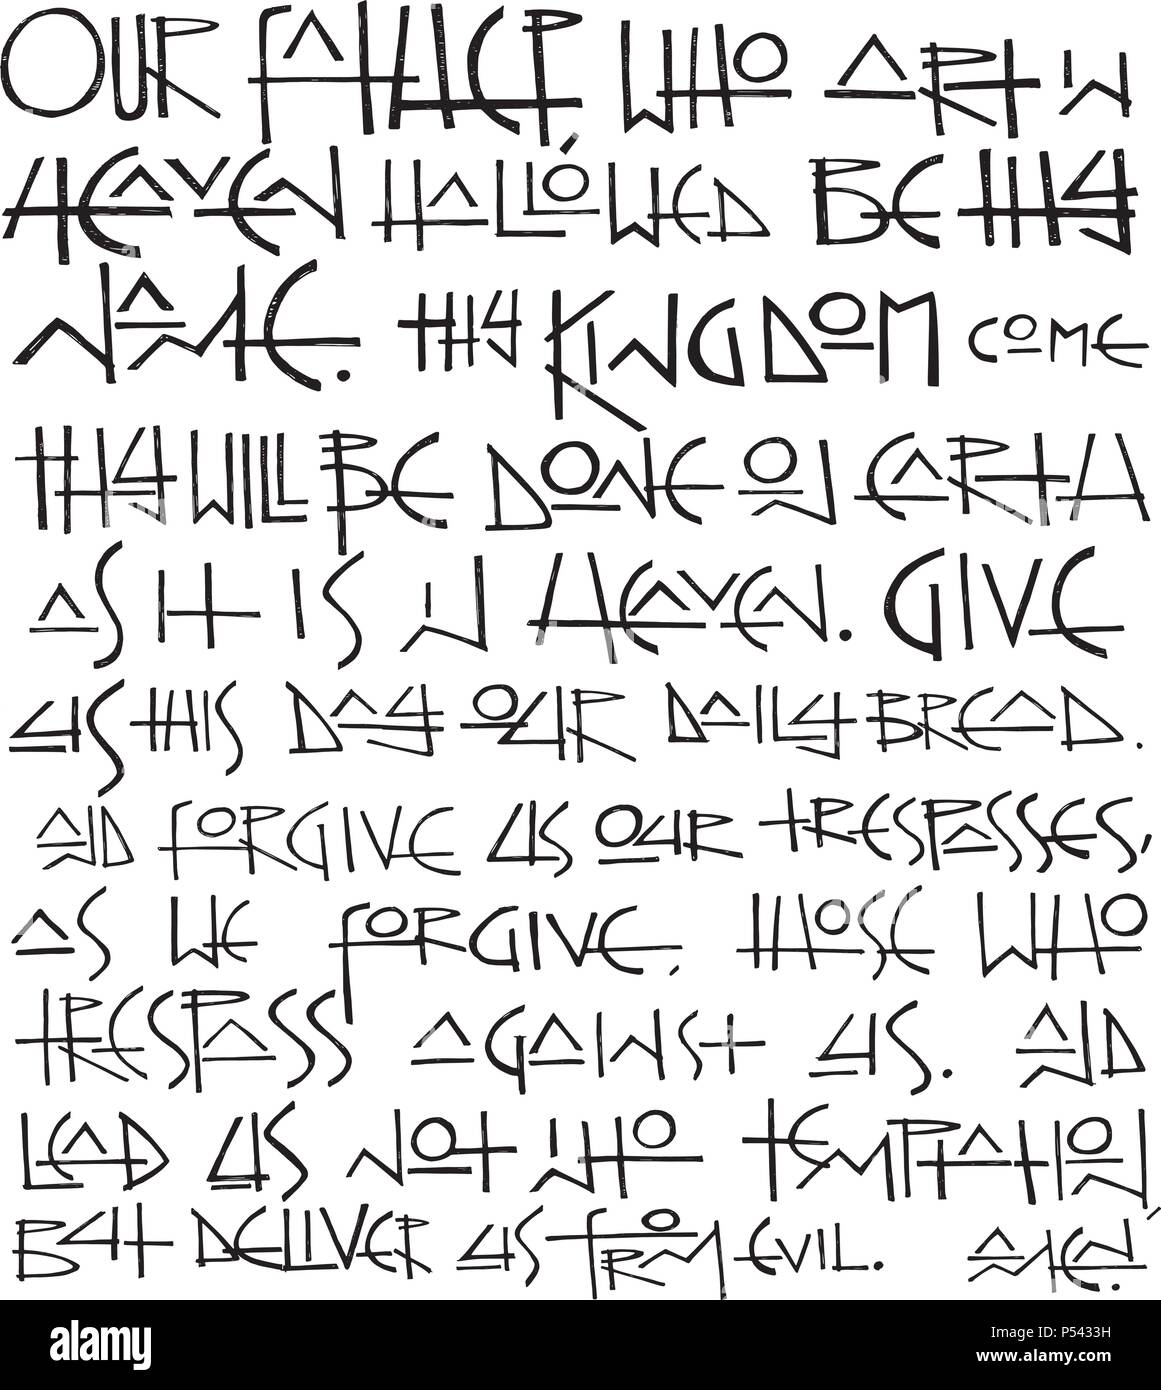 OUR FATHER WHO ART IN
HEAVEN HALLÓWED BE THY
NAME. THY KINGDOM COME
THY WILL BE DONE ON EARTH
AS IT IS IN HEAVEN. GIVE
US THIS DAY OUR DAILY BREAD.
AND FORGIVE US OUR TRESPASSES,
AS WE FORGIVE, THOSE WHO
TRESPASS AGAINST US. AND
LEAD US NOT INTO TEMPTATION
BUT DELIVER US FROM EVIL. AMEN.
alamy
Image ID: P5433H
www.alamy.com